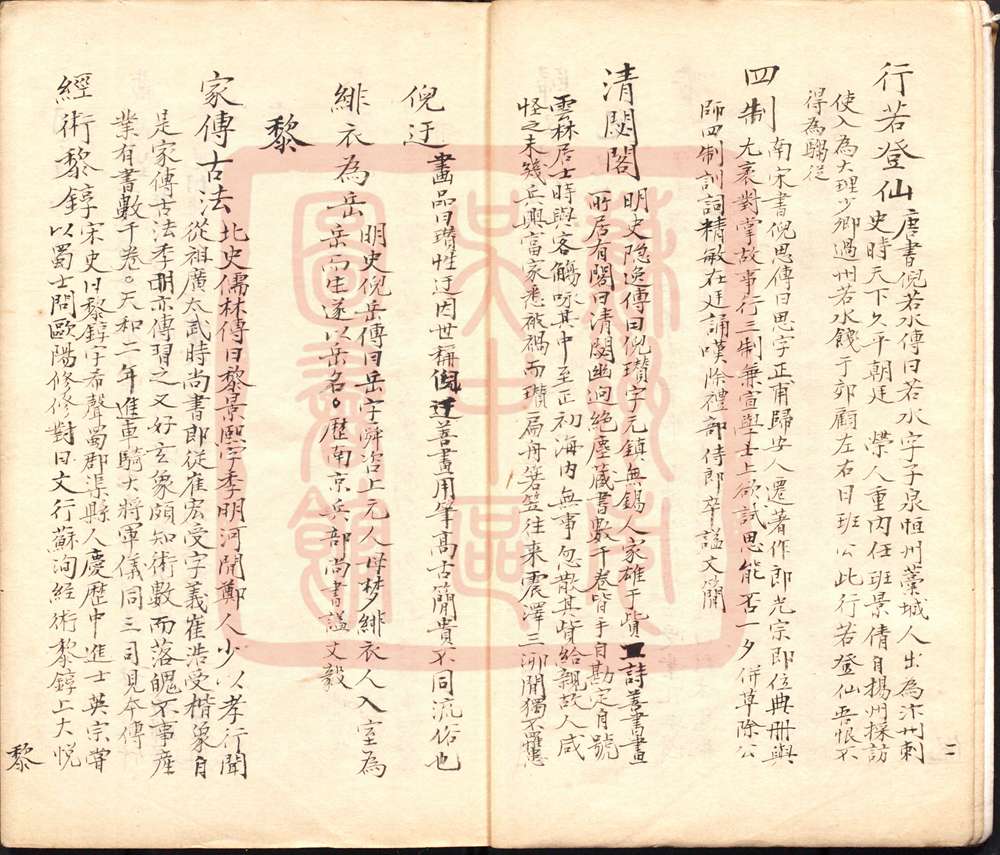 行若登仙 唐書倪若水傳曰若水字子泉恒州藁城人出為汴州刺
史時天下久平朝廷 榮人重內任班景倩自揚州採訪
使入為大理少卿過州若水餞于郊顧左右曰班公此行若登仙吾恨不
得為騶從
四制 南宋書倪思傳曰思字正甫歸安人遷著作郎光宗即位典冊與
尤袤對掌故事行三制兼宣學士上欲試思能否一夕併草除公
師四制訓詞精敏在廷誦嘆除禮部侍郎卒謚文簡
清閟閣 明史隐逸傳曰倪瓚字元鎮無錫人家雄于貲工詩善書畫
所居有閣曰清閟幽迥絕塵藏書數千卷皆手自勘定自號
雲林居士時與客觴咏其中至正初海内無事忽散其貲給親故人咸
怪之未幾兵興富家悉被禍而瓚扁舟箬笠往来震澤三泖間獨不罹患
倪迂 畫品曰瓚性迂因世稱倪迂善畫用筆高古簡貴不同流俗也
緋衣為岳 明史倪岳傳曰岳字舜咨上元人母梦緋衣人入室為
岳而生遂以岳名。歷南京兵部尚書謚文毅
黎
家傳古法 北史儒林傳曰黎景熙字季明河間鄭人少以孝行聞
從祖廣太武時尚書郎從崔宏受字義崔浩受楷象自
是家傳古法季明亦傳習之又好玄象頗知術數而落魄不事産
業有書數千卷。天和二年進車騎大將軍儀同三司見本傳
經術黎錞 宋史曰黎錞字希聲蜀郡渠縣人慶歷中進士英宗嘗
以蜀士問歐陽修修對曰文行蘇洵經術黎錞上大悅
二
黎